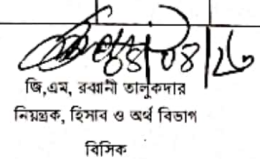 ০৪|০৪|২৬
জি,এম, রব্বানী তালুকদার
নিয়ন্ত্রক, হিসাব ও অর্থ বিভাগ
বিসিক